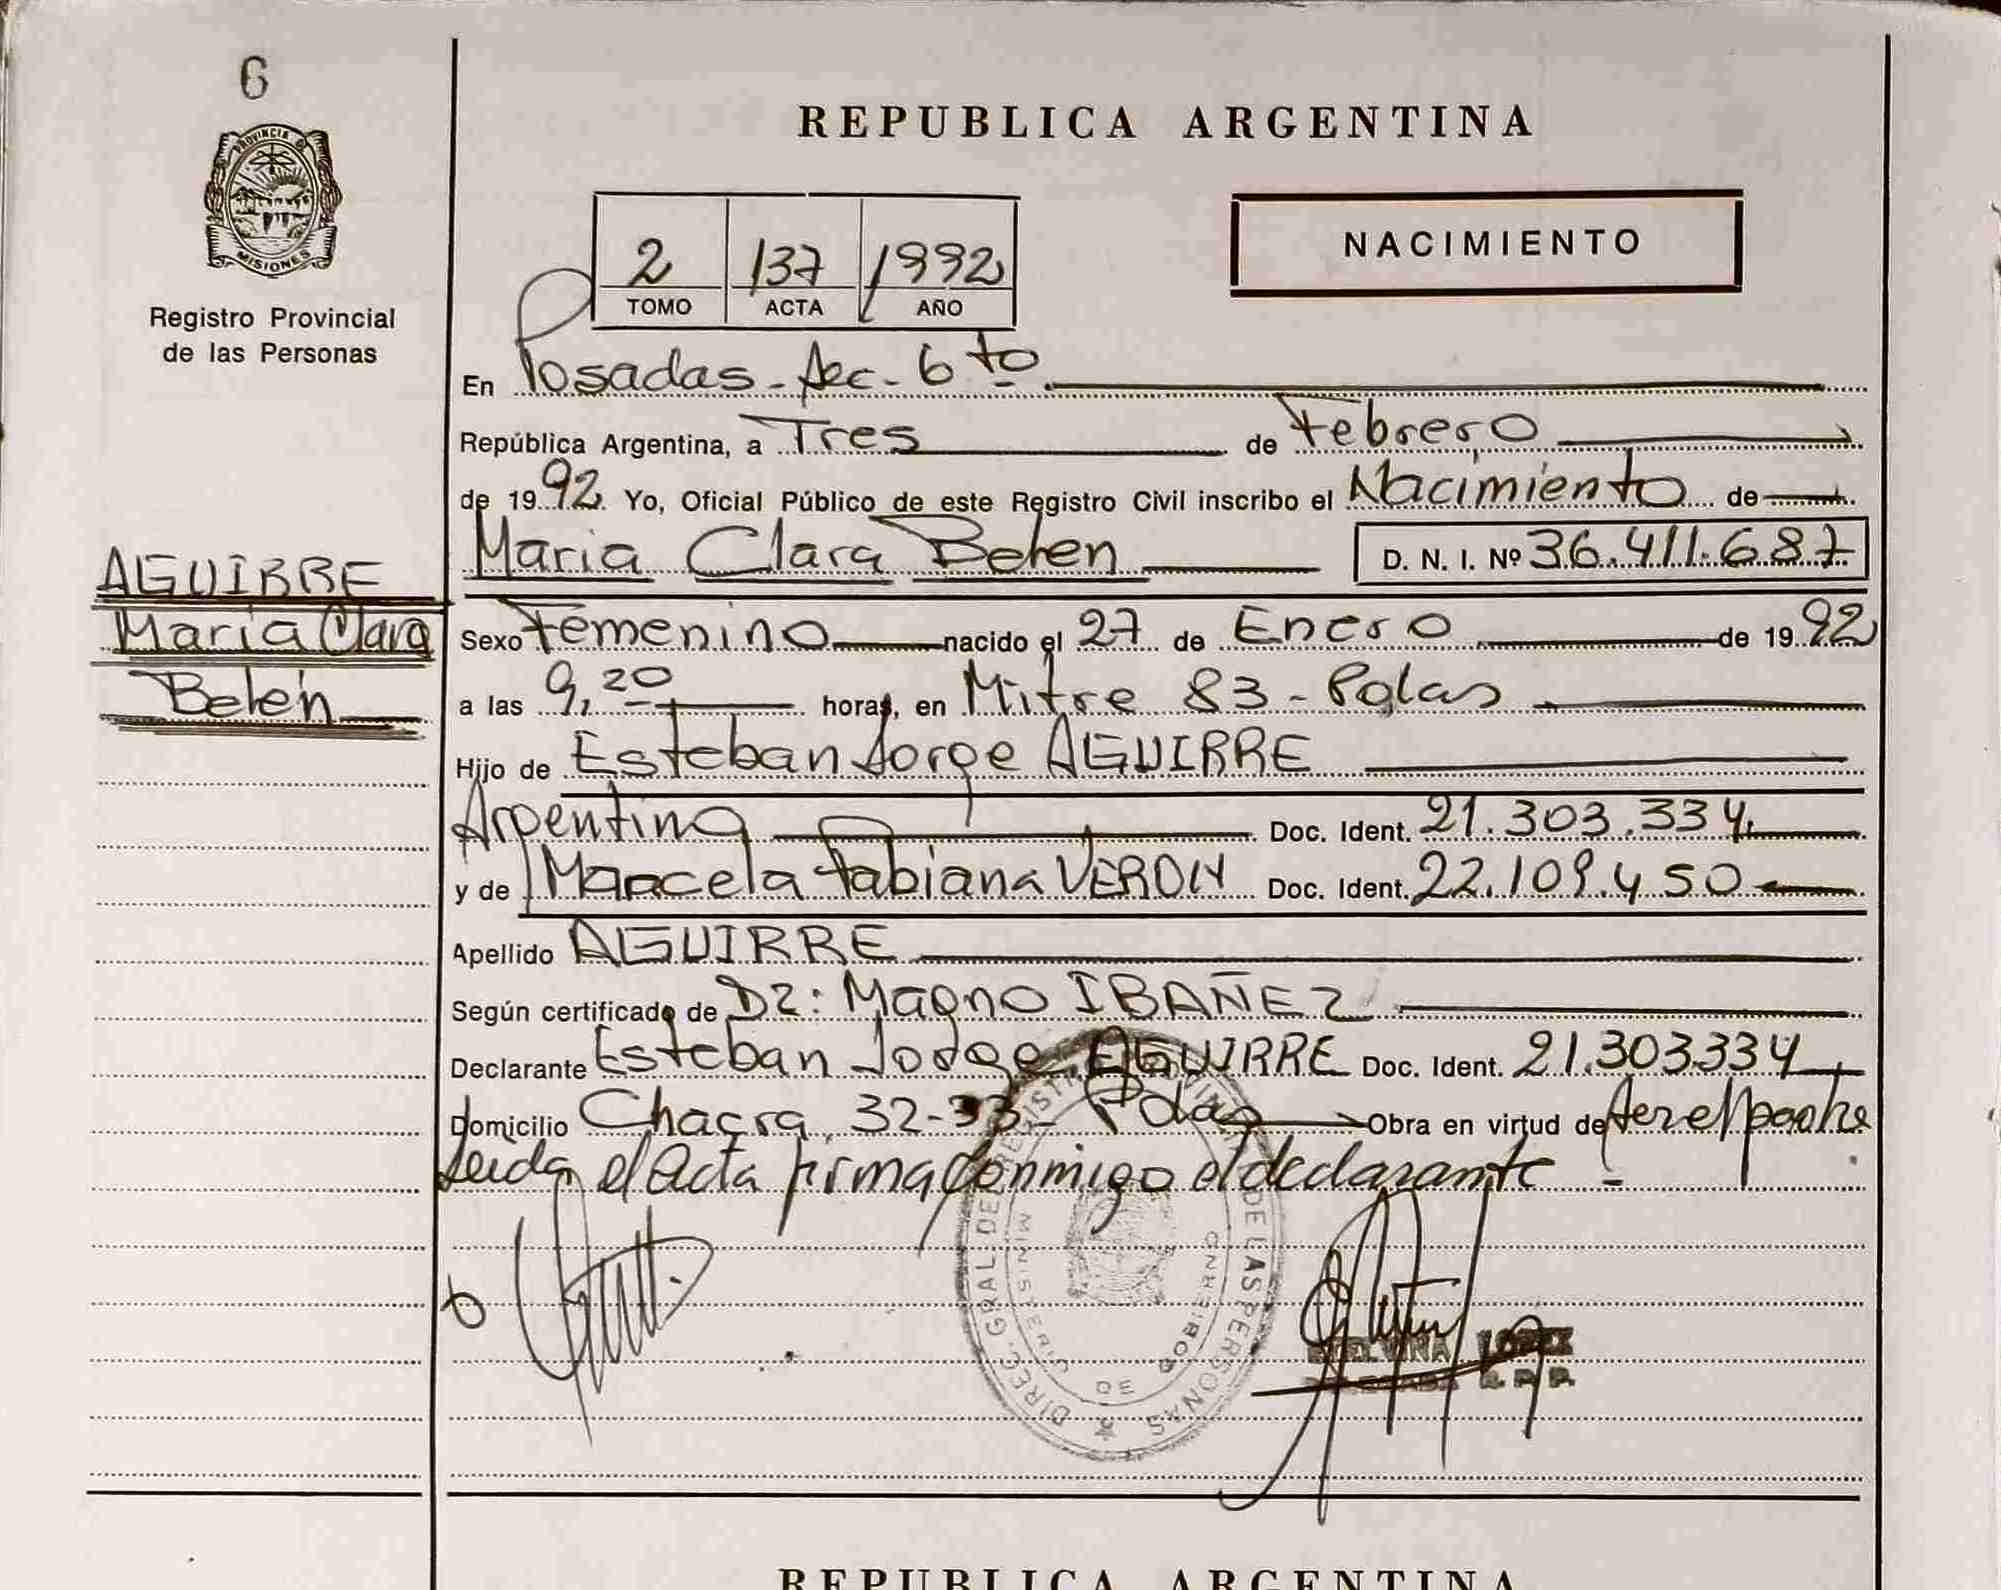 6
PROVINCIA DE
MISIONES
Registro Provincial
de las Personas
AGUIRRE
Maria Clara
Belén
REPUBLICA ARGENTINA
2 137 1992
TOMO ACTA AÑO
NACIMIENTO
En Posadas - Sec. 6to
República Argentina, a Tres de Febrero
de 1992 Yo, Oficial Público de este Registro Civil inscribo el Nacimiento de
Maria Clara Belen D. N. I. Nº 36.411.687
Sexo Femenino nacido el 27 de Enero de 1992
a las 9,20 horas, en Mitre 83 - Pdas
Hijo de Esteban Jorge AGUIRRE
Argentino Doc. Ident. 21.303.334
y de Marcela Fabiana VERON Doc. Ident. 22.109.450
Apellido AGUIRRE
Según certificado de Dr: Magno IBAÑEZ
Declarante Esteban Jorge AGUIRRE Doc. Ident. 21.303334
Domicilio Chacra 32-33 - Pdas Obra en virtud de ser el padre
Leida el Acta firma conmigo el declarante
DIREC. GRAL. DE REGISTRO DE LAS PERSONAS
MINISTERIO DE GOBIERNO
LOPEZ
R. P. P.
REPUBLICA ARGENTINA